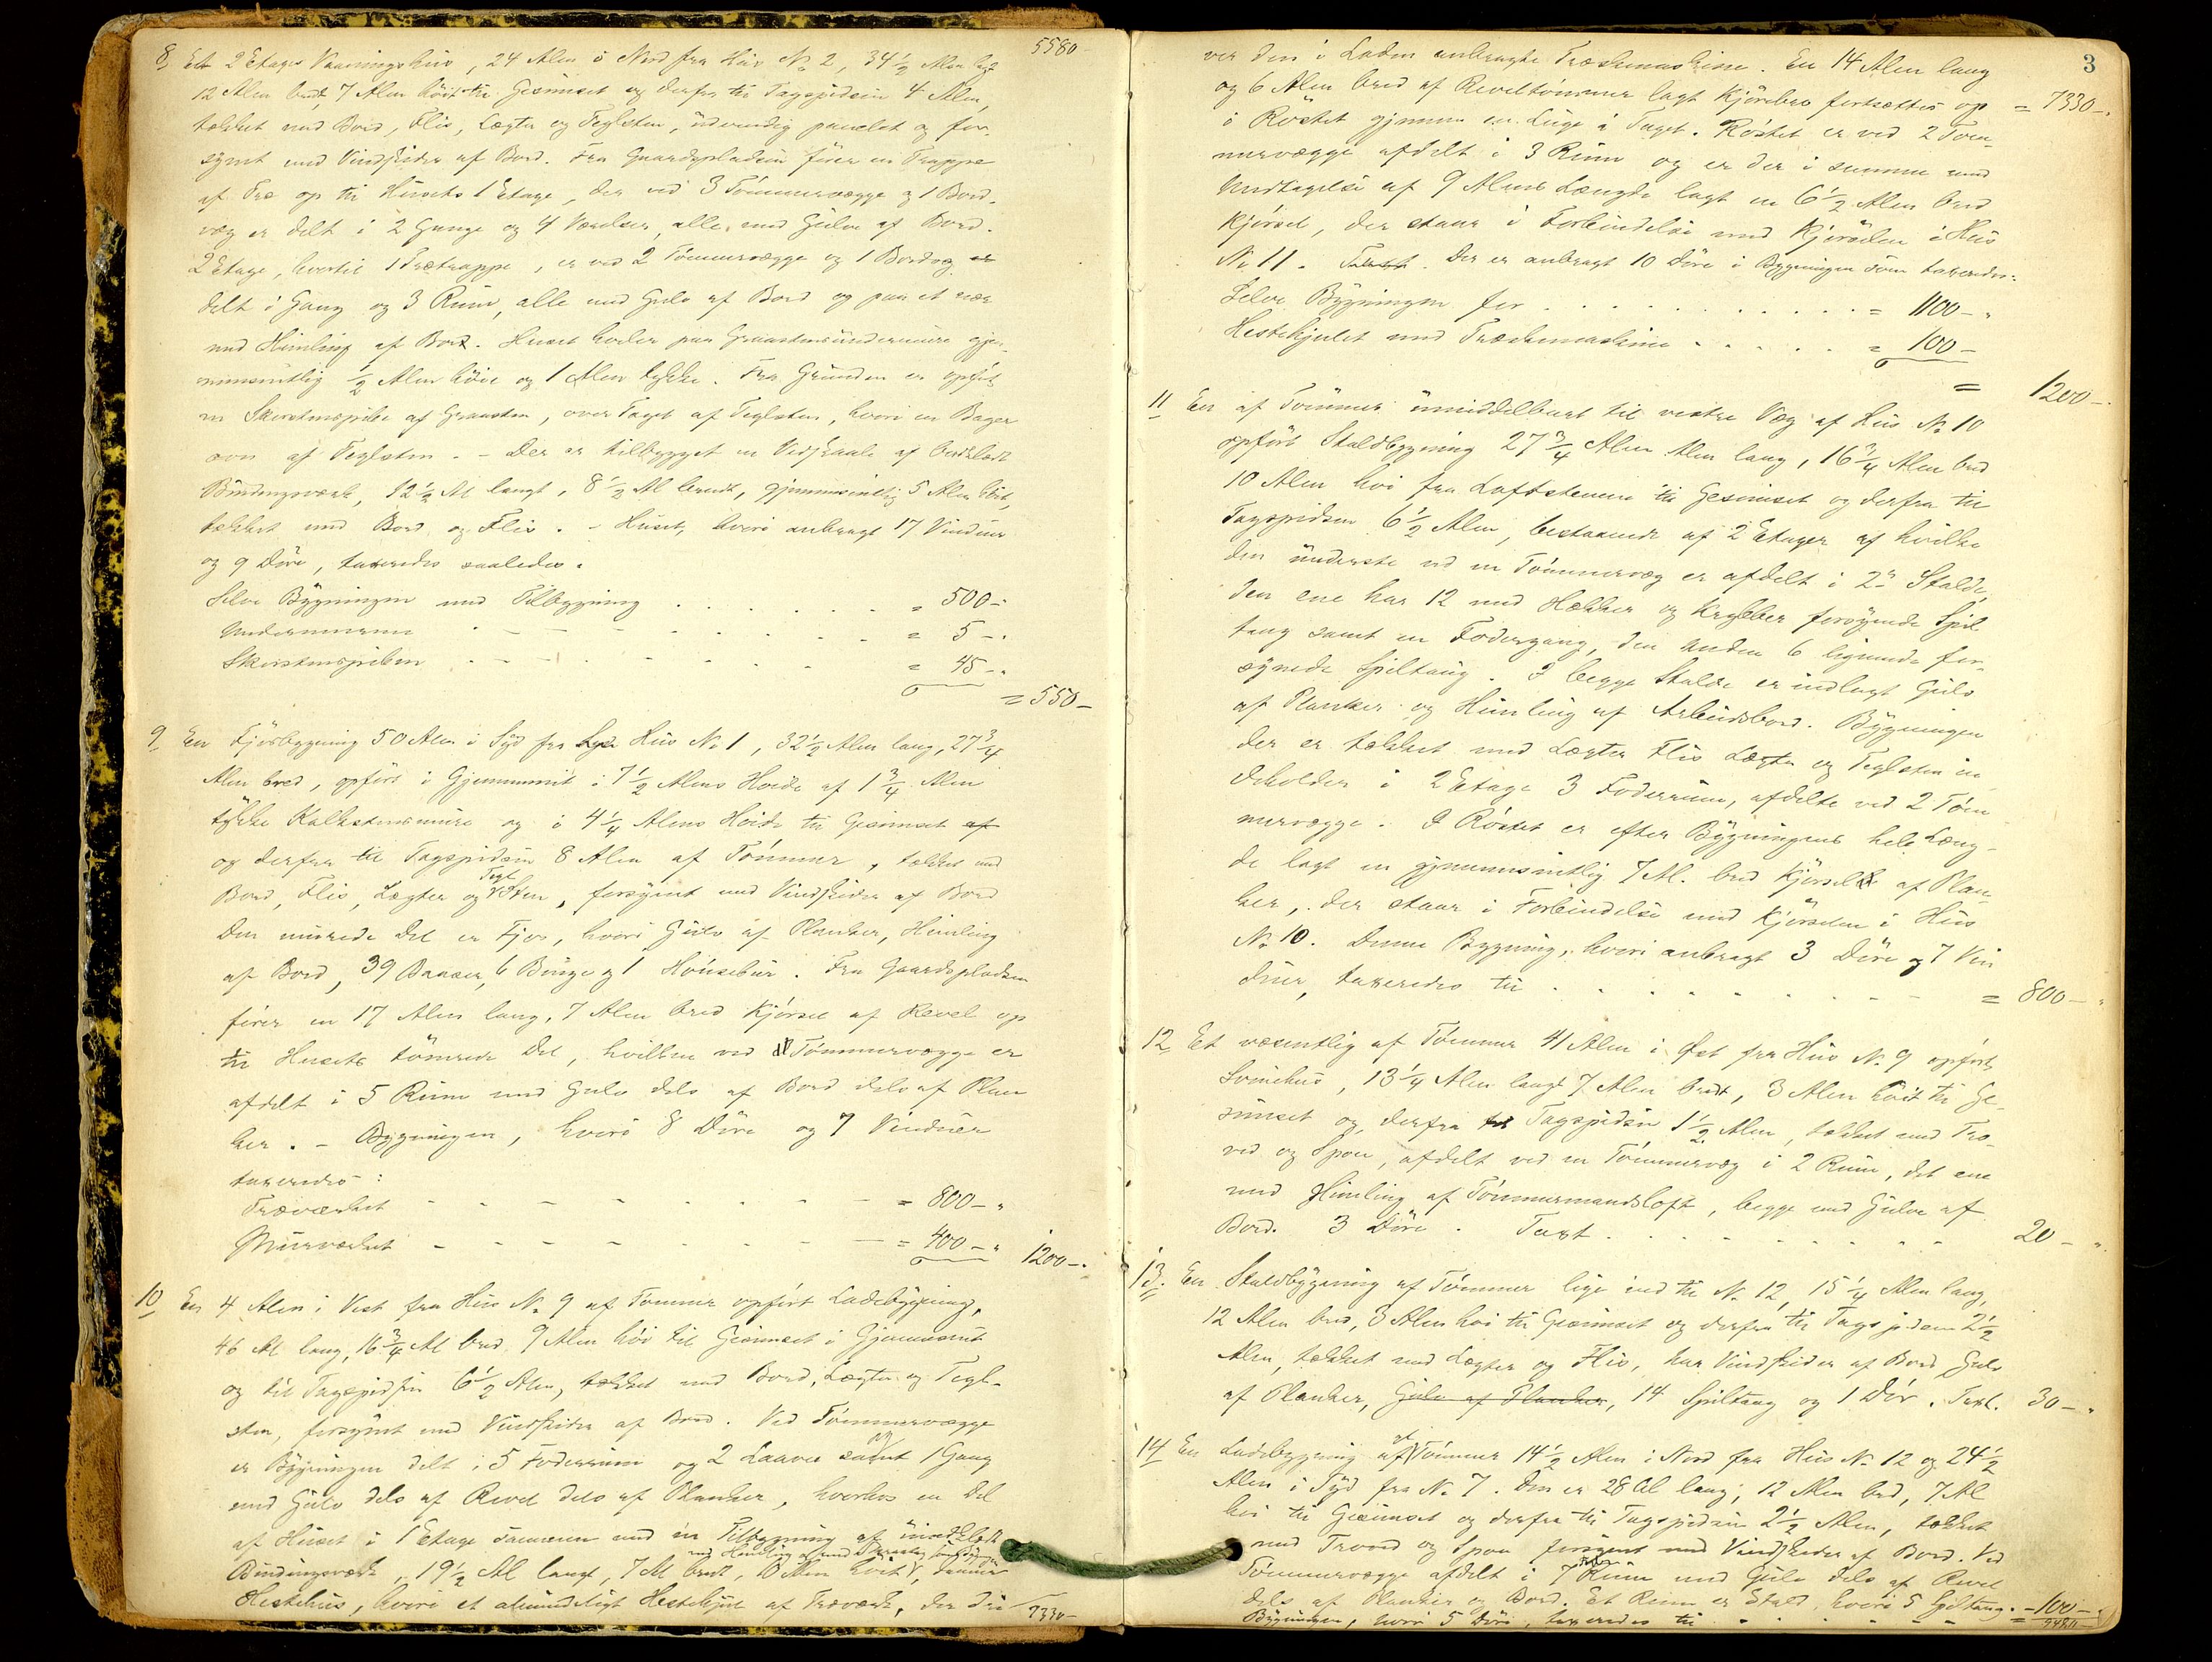 5580
8, Et 2 Etages Vaaningshus, 24 Alen i Nord fra Hus No 2, 34 1/2 Alen langt
12 Alen bredt, 7 Alen höit til Gesimset og derfra til Tagspidsen 4 Alen,
tækket med Bord, Flis, Lægter og Teglsten, udvendig panelet og for-
synet med Vindskeder af Bord. Fra Gaardspladsen fører en Trappe
af Træ op til Husets 1 Etage, der ved 3 Tömmervægge og 1 Bord-
væg er delt i 2 Gange og 4 Værelser, alle med Gulve af Bord.
2 Etage, hvortil 1 Trætrappe, er ved 2 Tömmervægge og 1 Bordvæg er
delt i Gang og 3 Rum, alle med Gulv af Bord og paa et nær
med Himling af Bord. Huset hviler paa Graastensundermure gjen-
nemsnitlig 1/2 Alen höie og 1 Alen tykke. Fra Grunden er opført
en Skorstenspibe af Graasten, over Taget af Teglsten, hvori en Bager
ovn af Teglsten. - Der er tilbygget en Vedskaale af bordklædt
Bindingsværk, 12 1/2 Al langt, 8 1/2 Al bredt, gjennemsnitlig 5 Alen höit,
tækket med Bord og Flis. - Huset, hvori anbragt 17 Vinduer
og 9 Döre, taxeredes saaledes.
Selve Bygningen med Tilbygning . . . . . . = 500 -
Undermurene - - - - . . . . . = 5 - .
Skorstenspiben . - - . . . . . = 45 - .
= 550 -
9, En Fjösbygning 50 Alen i Syd fra Hus No 1, 32 1/2 Alen lang, 27 3/4
Alen bred, opført i Gjennemsnit i 7 1/2 Alens Høide af 1 3/4 Alen
tykke Kalkstensmure og i 4 1/4 Alens Höide til Gesimset af
og derfra til Tagspidsen 8 Alen af Tömmer, tækket med
Bord, Flis, Lægter og Teglsten, forsynet med Vindskeder af Bord
Den murede Del er Fjös, hvori Gulv af Planker, Himling
af Bord, 39 Baaser, 6 Binge og 1 Hönsebur. Fra Gaardspladsen
fører en 17 Alen lang, 7 Alen bred Kjörsel af Revel op
til Husets tömrede Del, hvilken ved Tömmervægge er
afdelt i 5 Rum med Gulv dels af Bord dels af Plan
ker. - Bygningen, hvori 8 Döre og 7 Vinduer
taxeredes :
Træværket - - - - . . . - = 800 - .
Murværket - - - - - - - - = 400 - . 1200 - .
10, En 4 Alen i Vest fra Hus No 9 af Tömmer opført Ladebygning,
46 Al lang, 16 3/4 Al bred, 9 Alen höi til Gesimset i Gjennemsnit
og til Tagspidsen 6 1/2 Alen, tækket med Bord, Lægter og Tegl-
sten, forsynet med Vindskeder af Bord. Ved Tömmervægge
er Bygningen delt i 5 Foderrum og 2 Laaver samt 1 Gang
med Gulv dels af Revel dels af Planker, hvorhos en Del
af Huset i 1 Etage sammen med en Tilbygning af
Bindingsværk, 19 1/2 Al langt, 7 Al bredt, 10 Alen höit, danner
Hestehus, hvori et almindeligt Hestehjul af Træværk, der dri
7330 -
3
ver den i Laden anbragte Træskemaskine. En 14 Alen lang
og 6 Alen bred af Reveltömmer lagt Kjörebro fortsættes op = 7330 - .
i Röstet gjennem en Luge i Taget. Röstet er ved 2 Töm-
mervægge afdelt i 3 Rum og er der i samme med
Undtagelse af 9 Alens Længde lagt en 6 1/2 Alen bred
Kjörsel, der staar i Forbindelse med Kjörselen i Hus
No 11. Taxt. Der er anbragt 10 Döre i Bygningen som taxeredes:
Selve Bygningen for . . . . . . . . . . . = 1100 - .
Hestehjulet med Træskemaskine - . . . . = 100 -
= 1200 - .
11 En af Tömmer umiddelbart til vestre Væg af Hus No 10
opført Staldbygning 27 3/4 Alen Alen lang, 16 3/4 Alen bred
10 Alen höi fra Loftstenene til Gesimset og derfra til
Tagspidsen 6 1/2 Alen, bestaaende af 2 Etager af hvilke
den underste ved en Tömmervæg er afdelt i 2de Stalde,
den ene har 12 med Hækker og Krybber forsynede Spil
taug samt en Fodergang, den anden 6 lignende for-
synede Spiltaug. I begge Stalde er indlagt Gulv
af Planker og Himling af Arbeidsbord. Bygningen
der er tækket med Lægter Flis Lægter og Teglsten in
deholder i 2 Etage 3 Foderrum, afdelte ved 2 Töm
mervægge. I Röstet er efter Bygningens hele Læng-
de lagt en gjennemsnitlig 7 Al. bred Kjörsel af Plan
ker, der staar i Forbindelse med Kjörselen i Hus
No 10. Denne Bygning, hvori anbragt 3 Döre og 7 Vin
duer, taxeredes til . . . . . . . . . . - = 800 - .
12, Et væsentlig af Tömmer 41 Alen i Øst fra Hus No 9 opført
Svinehus, 13 1/4 Alen langt 7 Alen bredt, 3 Alen höit til Ge-
simset og derfra til Tagspidsen 1 1/2 Alen, tækket med Tro-
ved og Spon, afdelt ved en Tömmervæg i 2 Rum, det ene
med Himling af Tömmermandsloft, begge med Gulve af
Bord. 3 Döre . Taxt . . . . . . . . - - 20 - .
13. En Staldbygning af Tömmer lige ind til No 12, 15 1/4 Alen lang,
12 Alen bred, 3 Alen höi til Gesimset og derfra til Tagspidsen 2 1/2
Alen, tækket med Lægter og Flis, har Vindskeder af Bord Gulv
af Planker, Gulv af Planker, 14 Spiltaug og 1 Dör. Taxt. 30 - .
14 En Ladebygning af Tömmer 14 1/2 Alen i Nord fra Hus No 12 og 24 1/2
Alen i Syd fra No 7. Den er 28 Al lang, 12 Alen bred, 7 Al
höi til Gesimset og derfra til Tagspidsen 2 1/2 Alen, tækket
med Troved og Spon forsynet med Vindskeder af Bord. Ved
Tömmervægge afdelt i 7 Rum med Gulv dels af Revel
dels af Planker og Bord. Et Rum er Stald, hvori 5 Spiltaug. - 100 - .
Bygningen, hvori 5 Döre, taxeredes til . . . . . - - = 9480 -